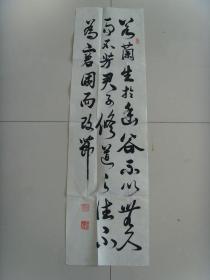 芝蘭生於幽谷不以無人
而不芳君子修道立德不
為窮困而改節